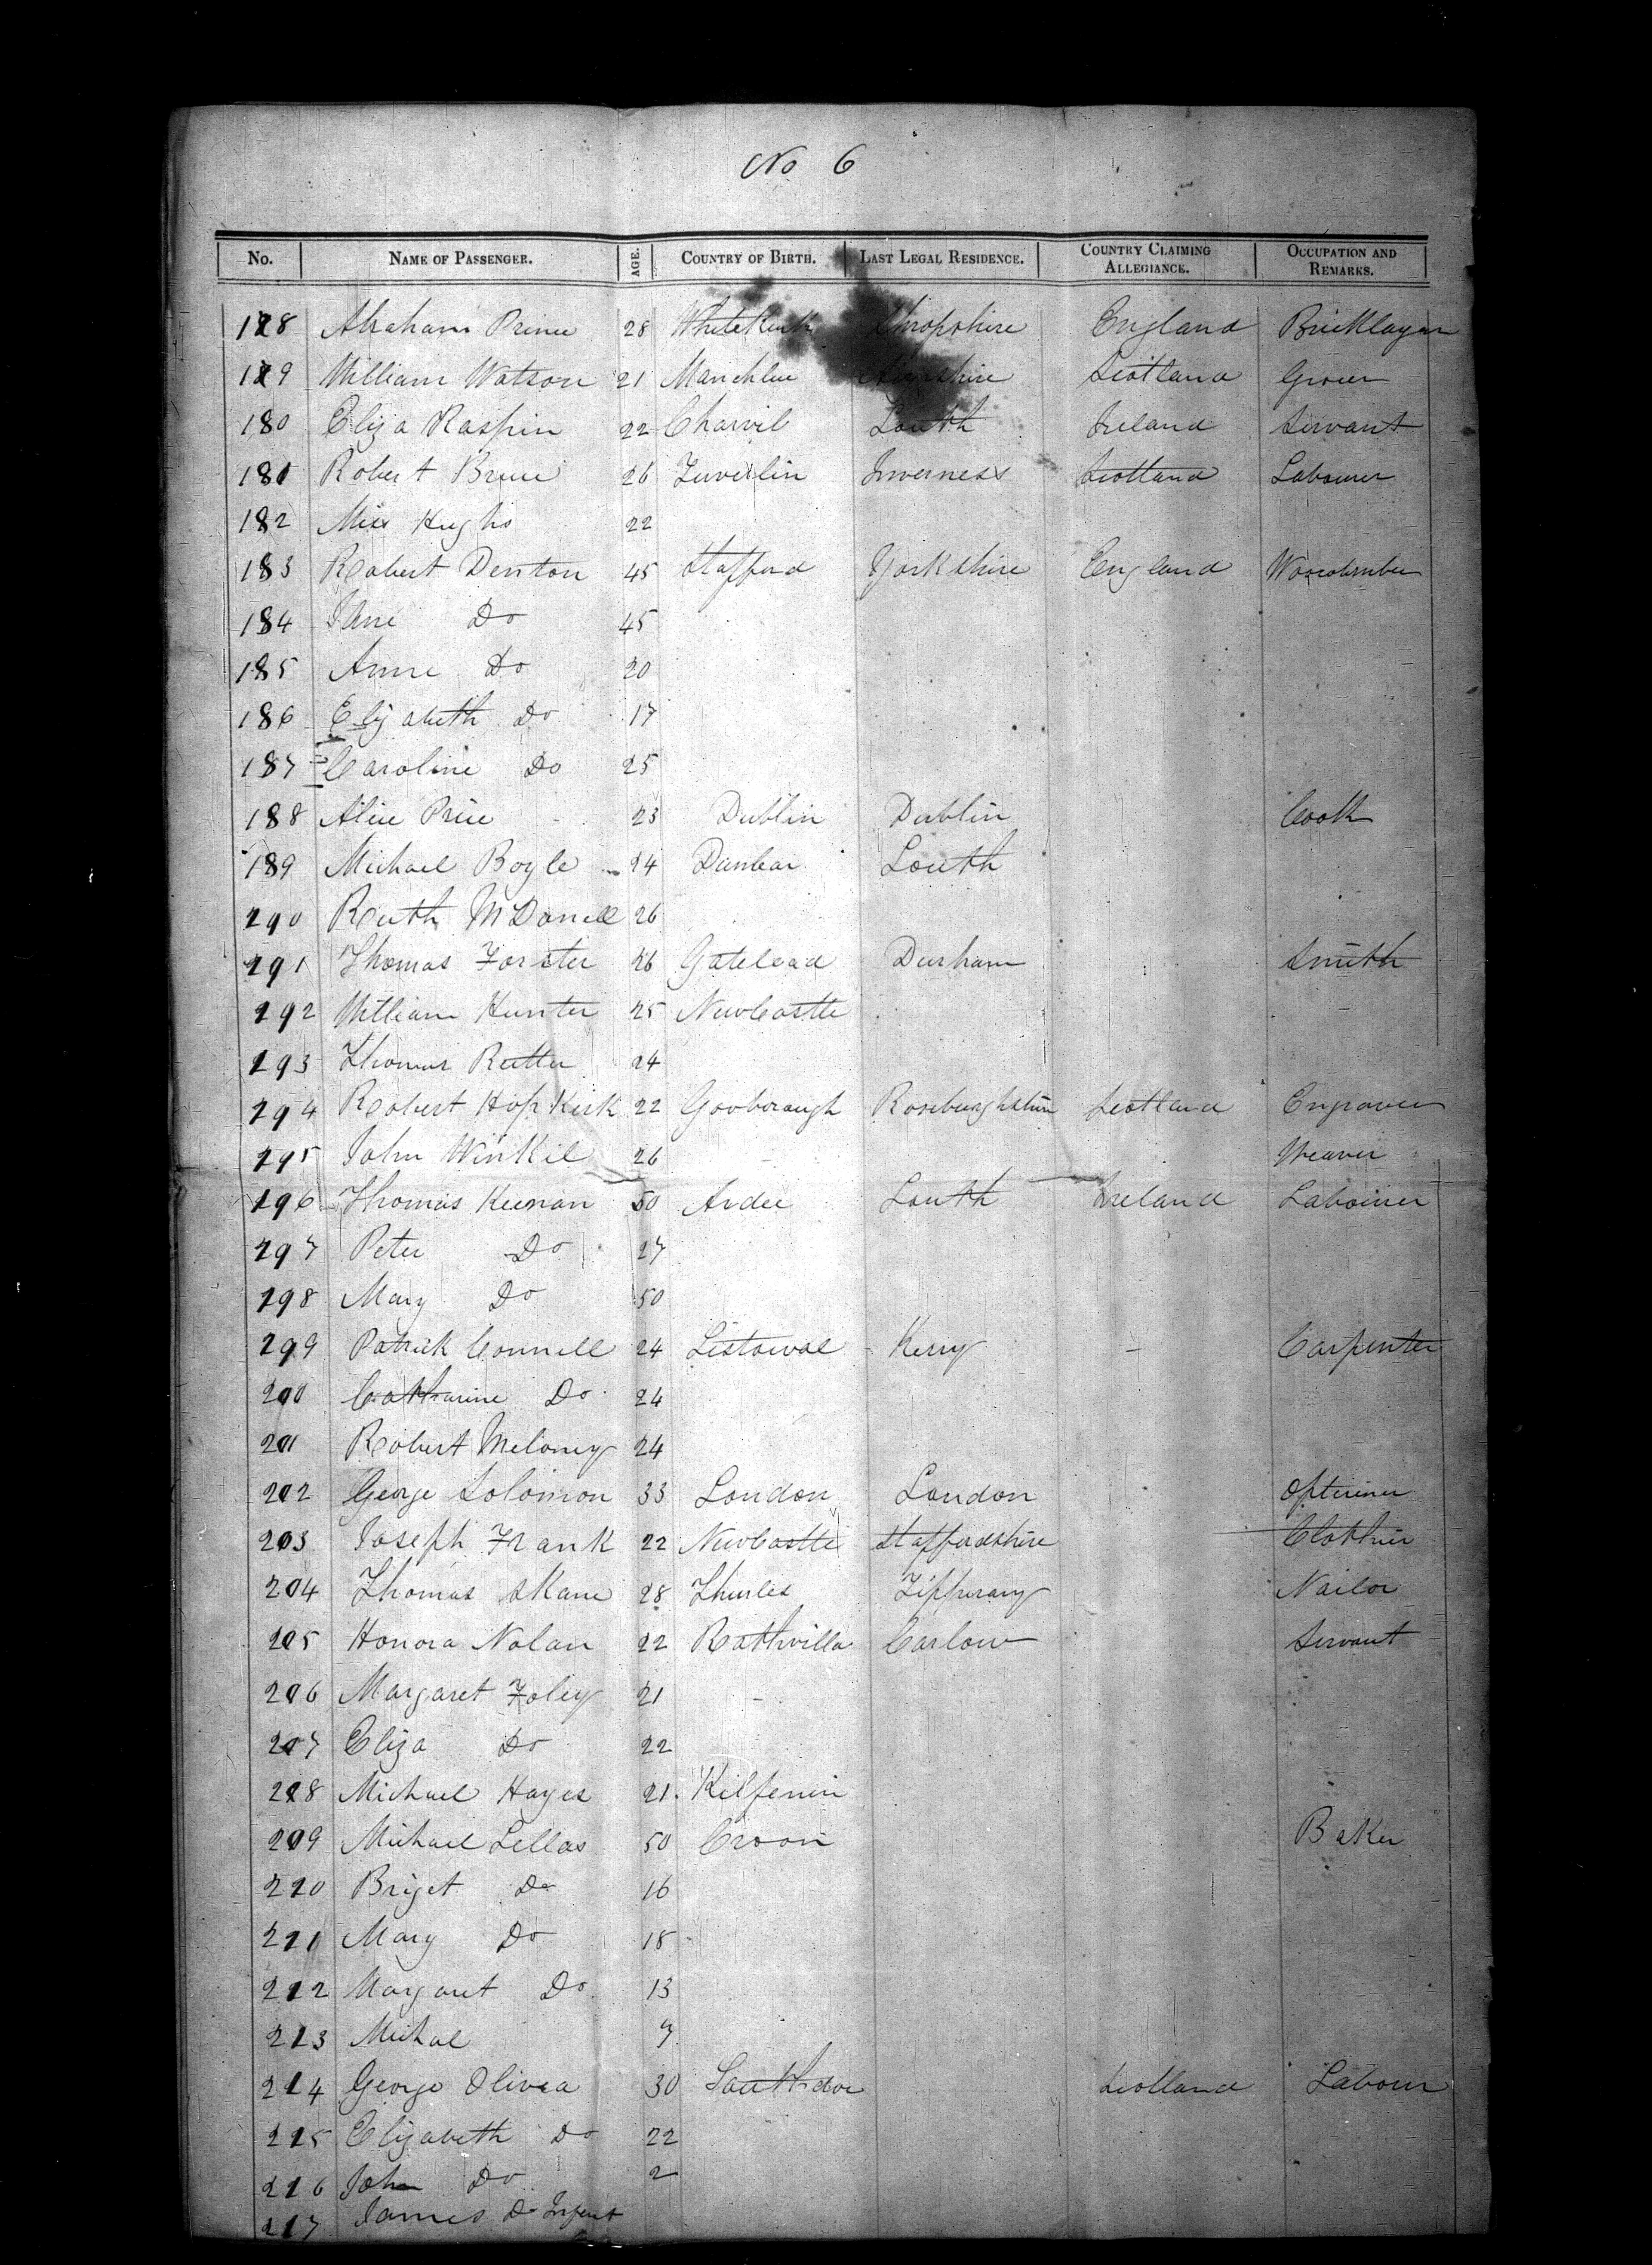 No 6
No. NAME OF PASSENGER. AGE. COUNTRY OF BIRTH. LAST LEGAL RESIDENCE. COUNTRY CLAIMING ALLEGIANCE. OCCUPATION AND REMARKS.
178 Abraham Prince 28 Shropshire England Bricklayer
179 William Watson 21 Scotland Grocer
180 Eliza Raspin 22 Charvil Louth Ireland Servant
181 Robert Bruce 26 Inverness Scotland Labourer
182 Miss Hughs 22
183 Robert Denton 45 Stafford Yorkshire England
184 Jane Do 45
185 Anne Do 20
186 Elizabeth Do 17
187 Caroline Do 25
188 Alice Price 23 Dublin Dublin Cook
189 Michael Boyle 24 Dunbar Louth
190 Ruth McDonell 26
191 Thomas Forster 26 Gatelead Durham Smith
192 William Hunter 25 NewCastle
193 Thomas Rutter 24
194 Robert HopKirk 22 Roxburghshire Scotland Engraver
195 John WinKil 26 Weaver
196 Thomas Keenan 50 Ardee Louth Ireland Labourer
197 Peter Do 27
198 Mary Do 50
199 Patrick Connell 24 Listowal Kerry Carpenter
200 Catharine Do 24
201 Robert Meloney 24
202 George Solomon 33 London London
203 Joseph Frank 22 NewCastle Staffordshire Clothier
204 Thomas 28 Thurles Tipperary Nailor
205 Honora Nolan 22 Rathvilla Carlow Servant
206 Margaret Foley 21
207 Eliza Do 22
208 Michael Hayes 21 Kilfenin
209 Michael Lellas 50 Croon Baker
210 Briget Do 16
211 Mary Do 15
212 Margaret Do 13
213 Michal 7
214 George Olivea 30 Scotland Labour
215 Elizabeth Do 22
216 John Do 2
217 James Do Infant